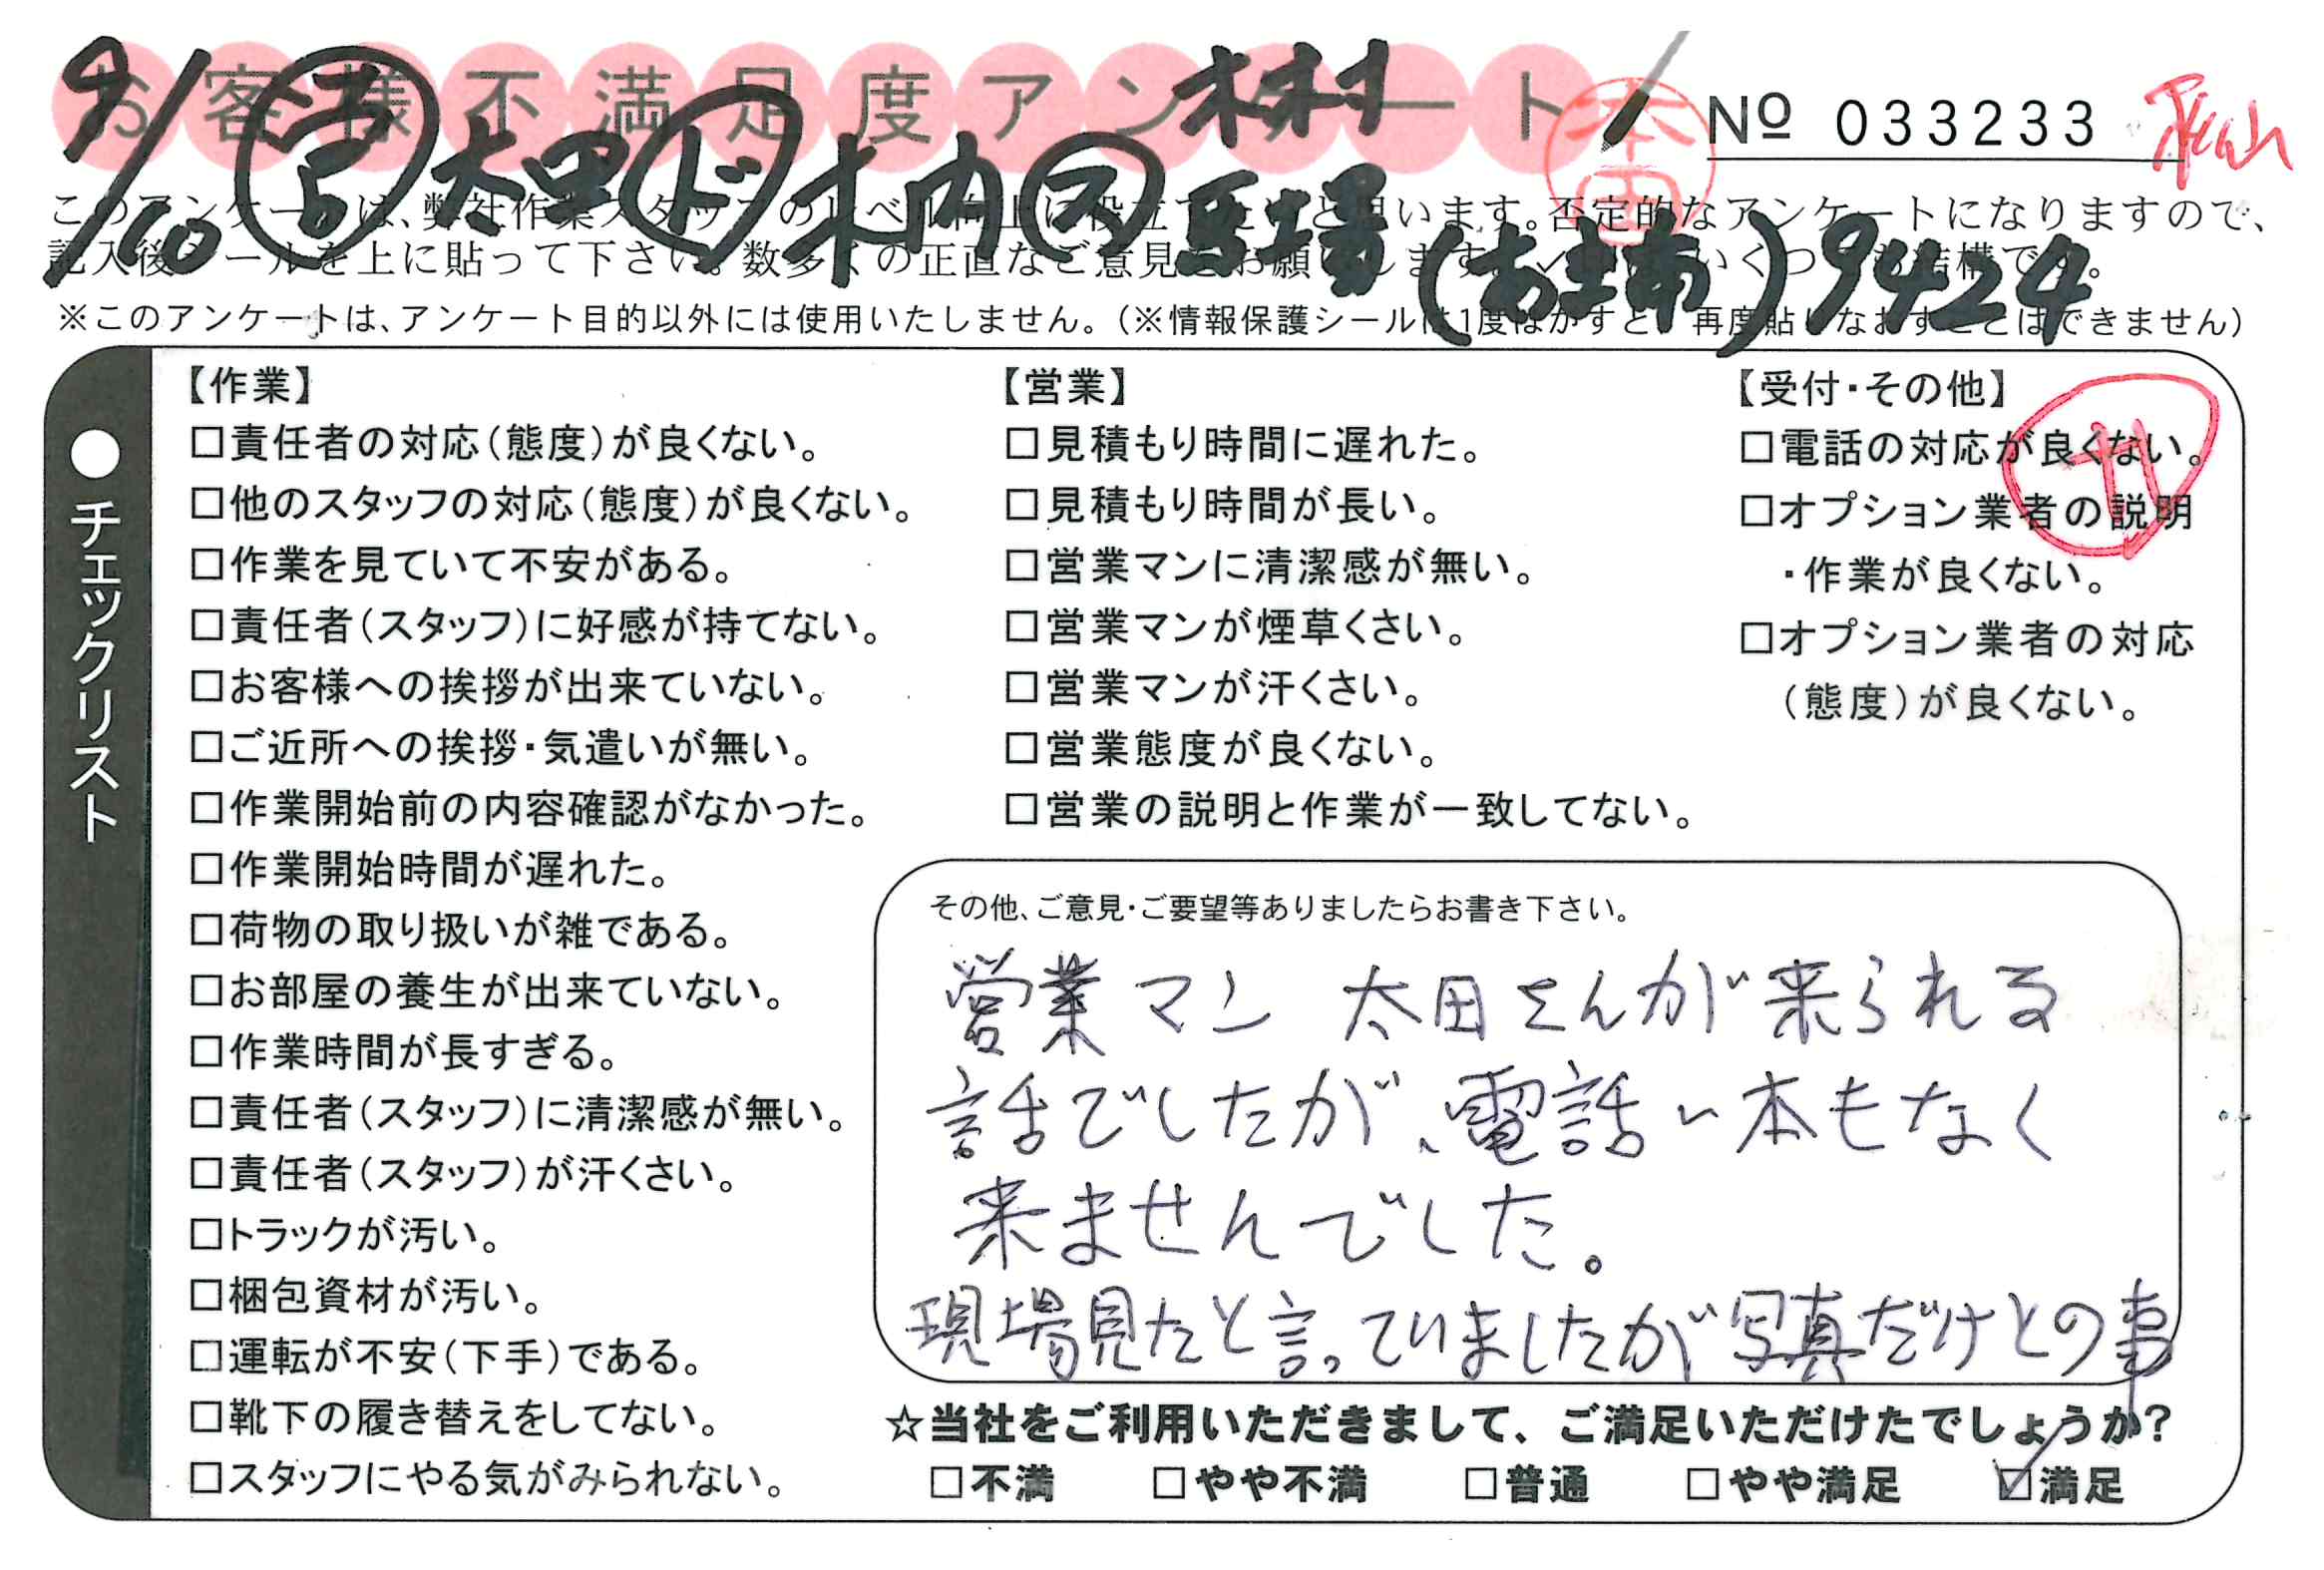 お客様不満足度アンケート
No 033233
9/10 太田 ド 木内 ス 馬場 木村 9424
本田
このアンケートは、弊社作業スタッフのレベル向上に役立てたいと思います。否定的なアンケートになりますので、
記入後シールを上に貼って下さい。数多くの正直なご意見をお願いします。
※このアンケートは、アンケート目的以外には使用いたしません。（※情報保護シールは1度はがすと、再度貼りなおすことはできません）
●チェックリスト
【作業】
□責任者の対応（態度）が良くない。
□他のスタッフの対応（態度）が良くない。
□作業を見ていて不安がある。
□責任者（スタッフ）に好感が持てない。
□お客様への挨拶が出来ていない。
□ご近所への挨拶・気遣いが無い。
□作業開始前の内容確認がなかった。
□作業開始時間が遅れた。
□荷物の取り扱いが雑である。
□お部屋の養生が出来ていない。
□作業時間が長すぎる。
□責任者（スタッフ）に清潔感が無い。
□責任者（スタッフ）が汗くさい。
□トラックが汚い。
□梱包資材が汚い。
□運転が不安（下手）である。
□靴下の履き替えをしてない。
□スタッフにやる気がみられない。
【営業】
□見積もり時間に遅れた。
□見積もり時間が長い。
□営業マンに清潔感が無い。
□営業マンが煙草くさい。
□営業マンが汗くさい。
□営業態度が良くない。
□営業の説明と作業が一致してない。
【受付・その他】
□電話の対応が良くない。
□オプション業者の説明
・作業が良くない。
□オプション業者の対応
（態度）が良くない。
その他、ご意見・ご要望等ありましたらお書き下さい。
営業マン 太田さんが来られる
話でしたが、電話一本もなく
来ませんでした。
現場見たと言っていましたが写真だけとの事
☆当社をご利用いただきまして、ご満足いただけたでしょうか？
□不満 □やや不満 □普通 □やや満足 ☑満足